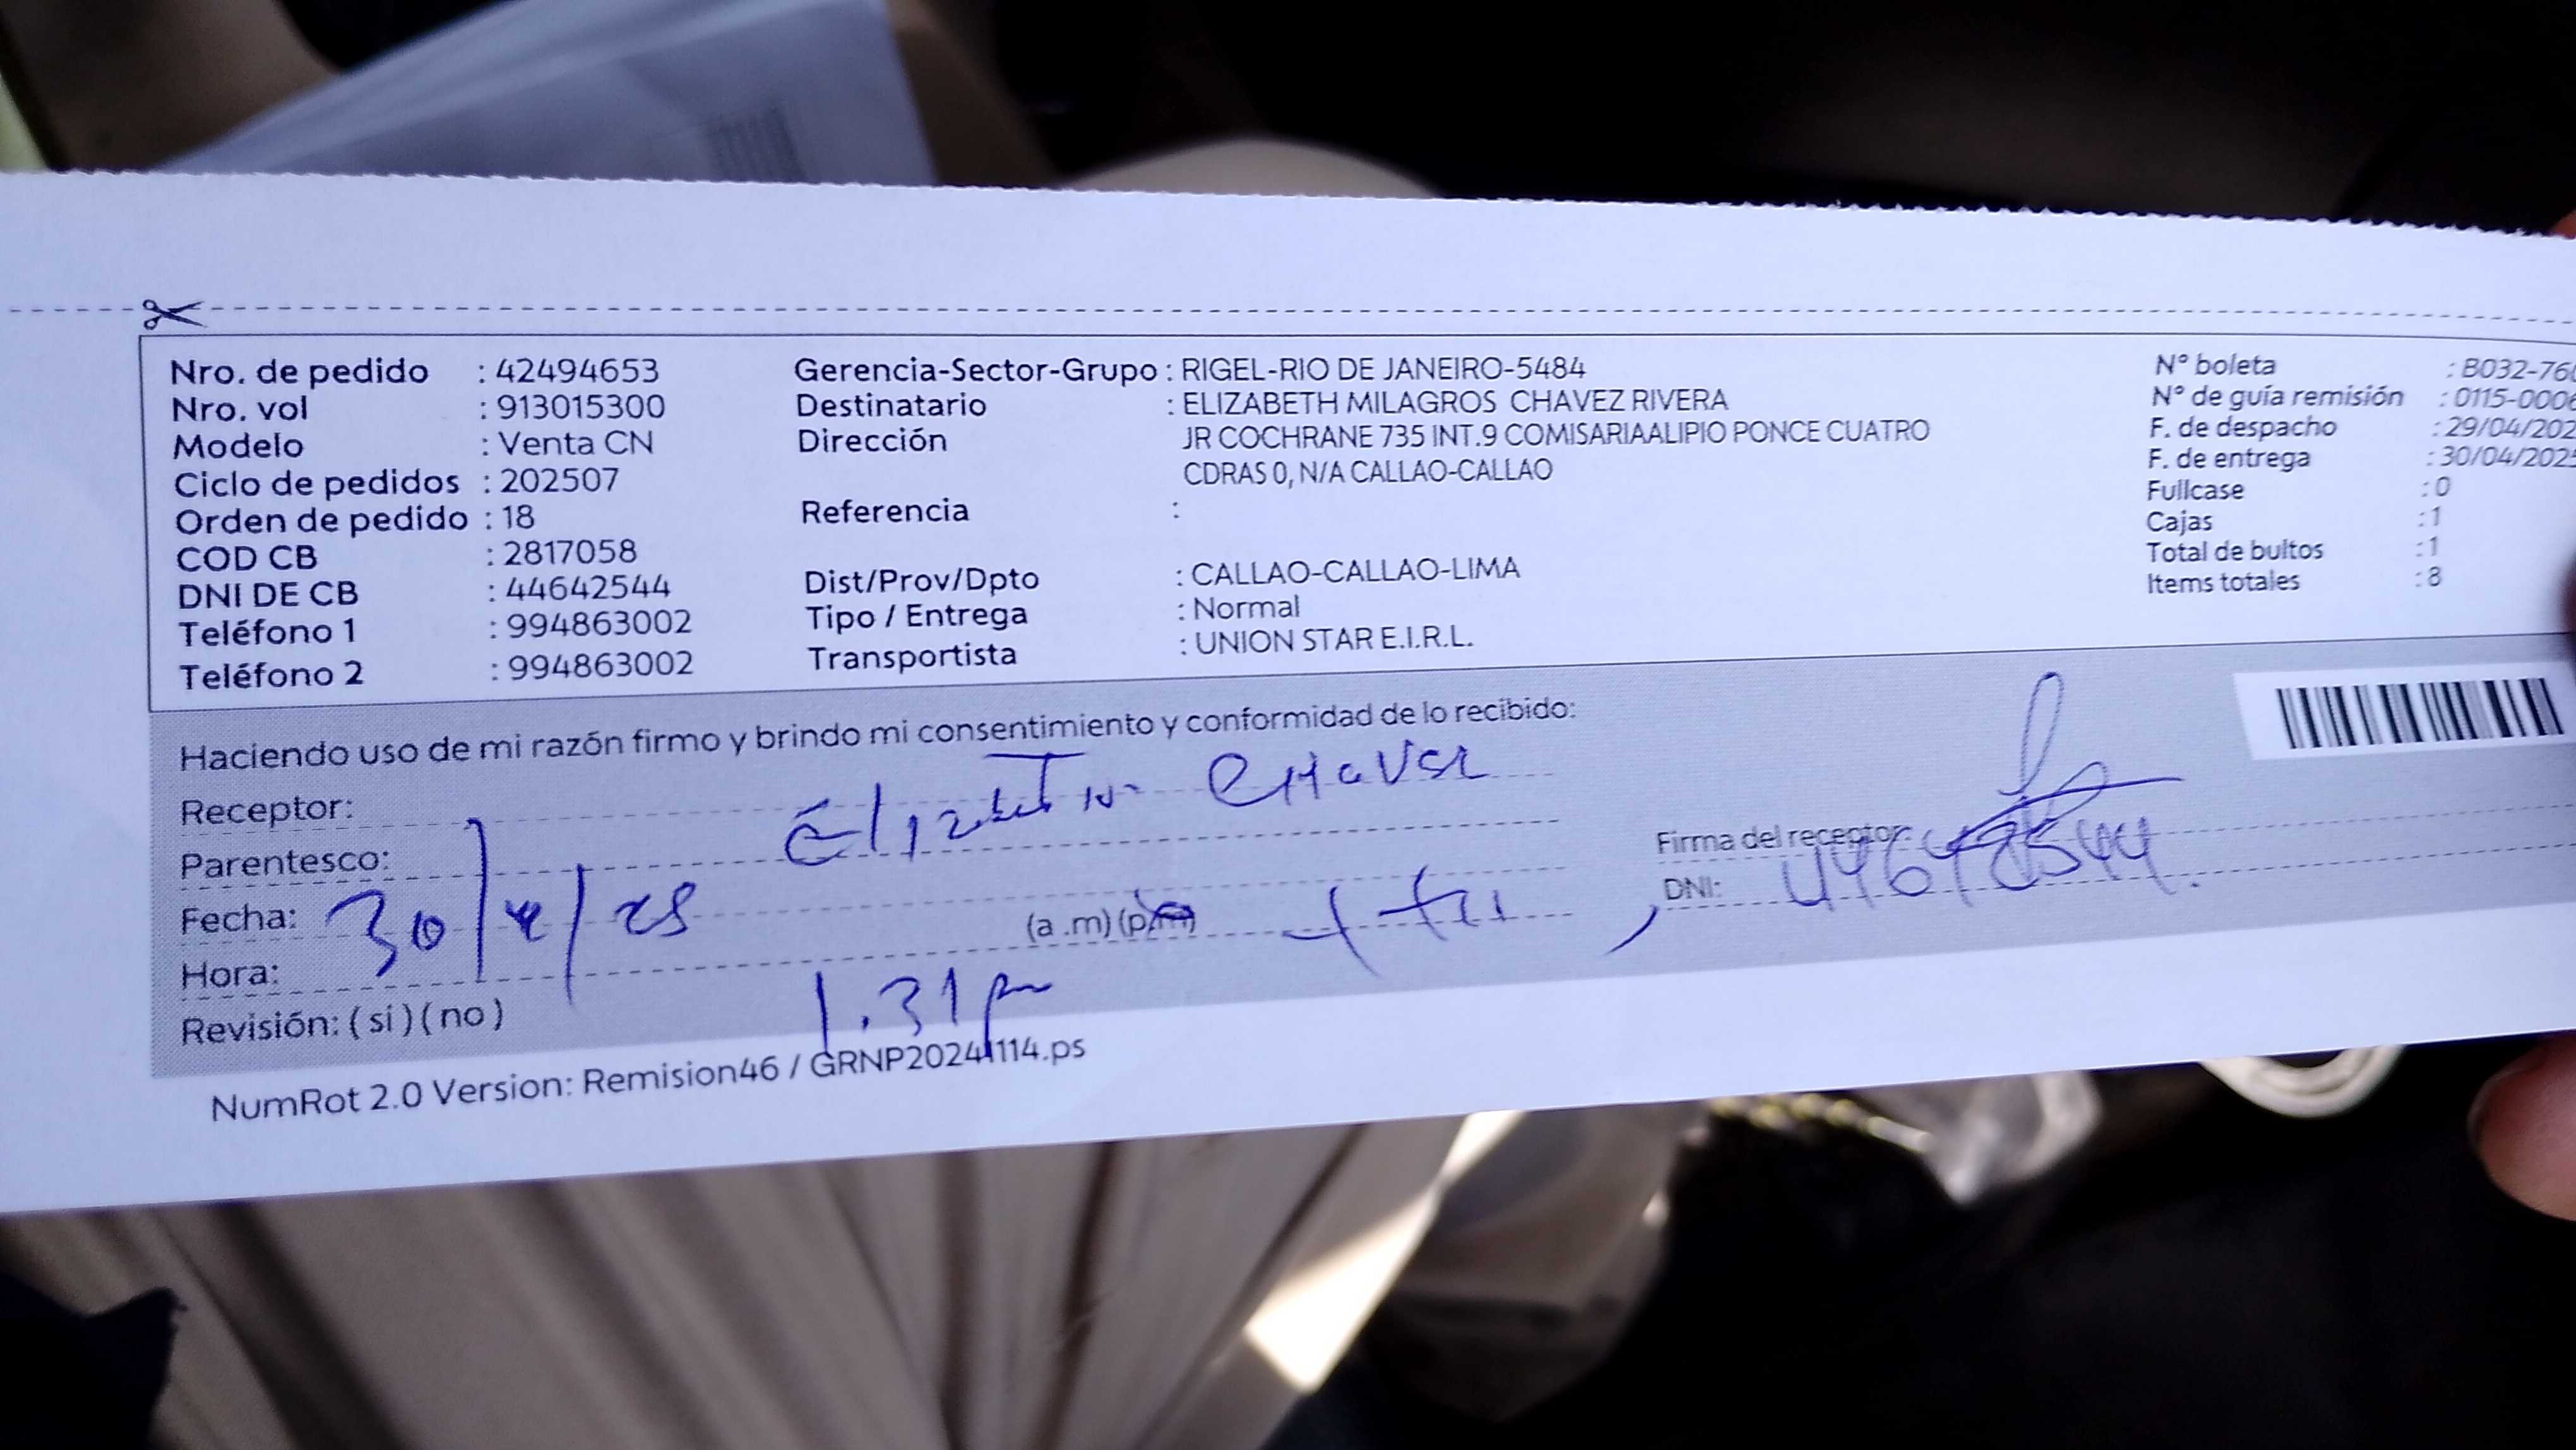 Nro. de pedido : 42494653
Nro. vol : 913015300
Modelo : Venta CN
Ciclo de pedidos : 202507
Orden de pedido : 18
COD CB : 2817058
DNI DE CB : 44642544
Teléfono 1 : 994863002
Teléfono 2 : 994863002
Gerencia-Sector-Grupo : RIGEL-RIO DE JANEIRO-5484
Destinatario : ELIZABETH MILAGROS CHAVEZ RIVERA
Dirección JR COCHRANE 735 INT.9 COMISARIAALIPIO PONCE CUATRO
CDRAS 0, N/A CALLAO-CALLAO
Referencia :
Dist/Prov/Dpto : CALLAO-CALLAO-LIMA
Tipo / Entrega : Normal
Transportista : UNION STAR E.I.R.L.
N° boleta : B032-76
N° de guía remisión : 0115-000
F. de despacho : 29/04/202
F. de entrega : 30/04/202
Fullcase : 0
Cajas : 1
Total de bultos : 1
Items totales : 8
Haciendo uso de mi razón firmo y brindo mi consentimiento y conformidad de lo recibido:
Receptor:
Parentesco:
Fecha: 30/4/25 (a .m) (p.m)
Hora: 1.31 pm
Revisión: ( si ) ( no )
Firma del receptor:
DNI:
NumRot 2.0 Version: Remision46 / GRNP20241114.ps